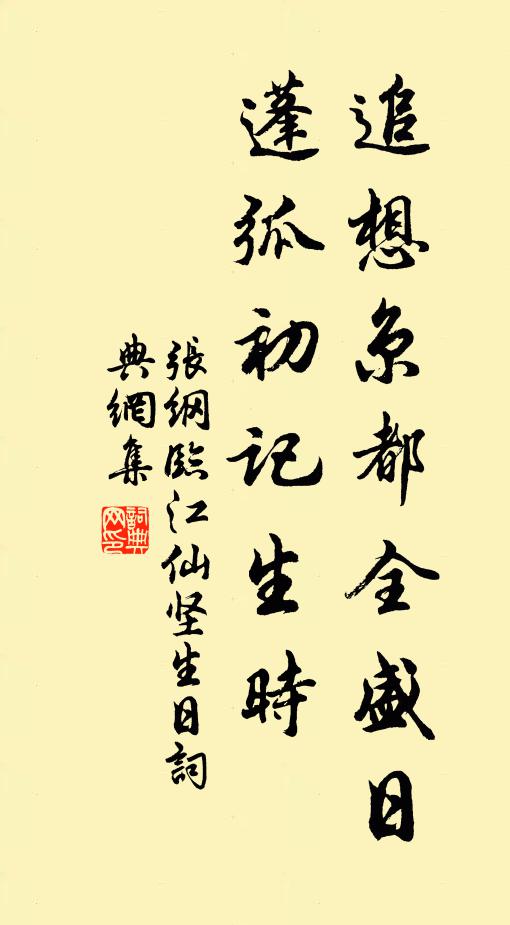 追想京都全盛日
蓬弧初记生時
張纲臨江仙坚生日詞
典網集
詞典网印